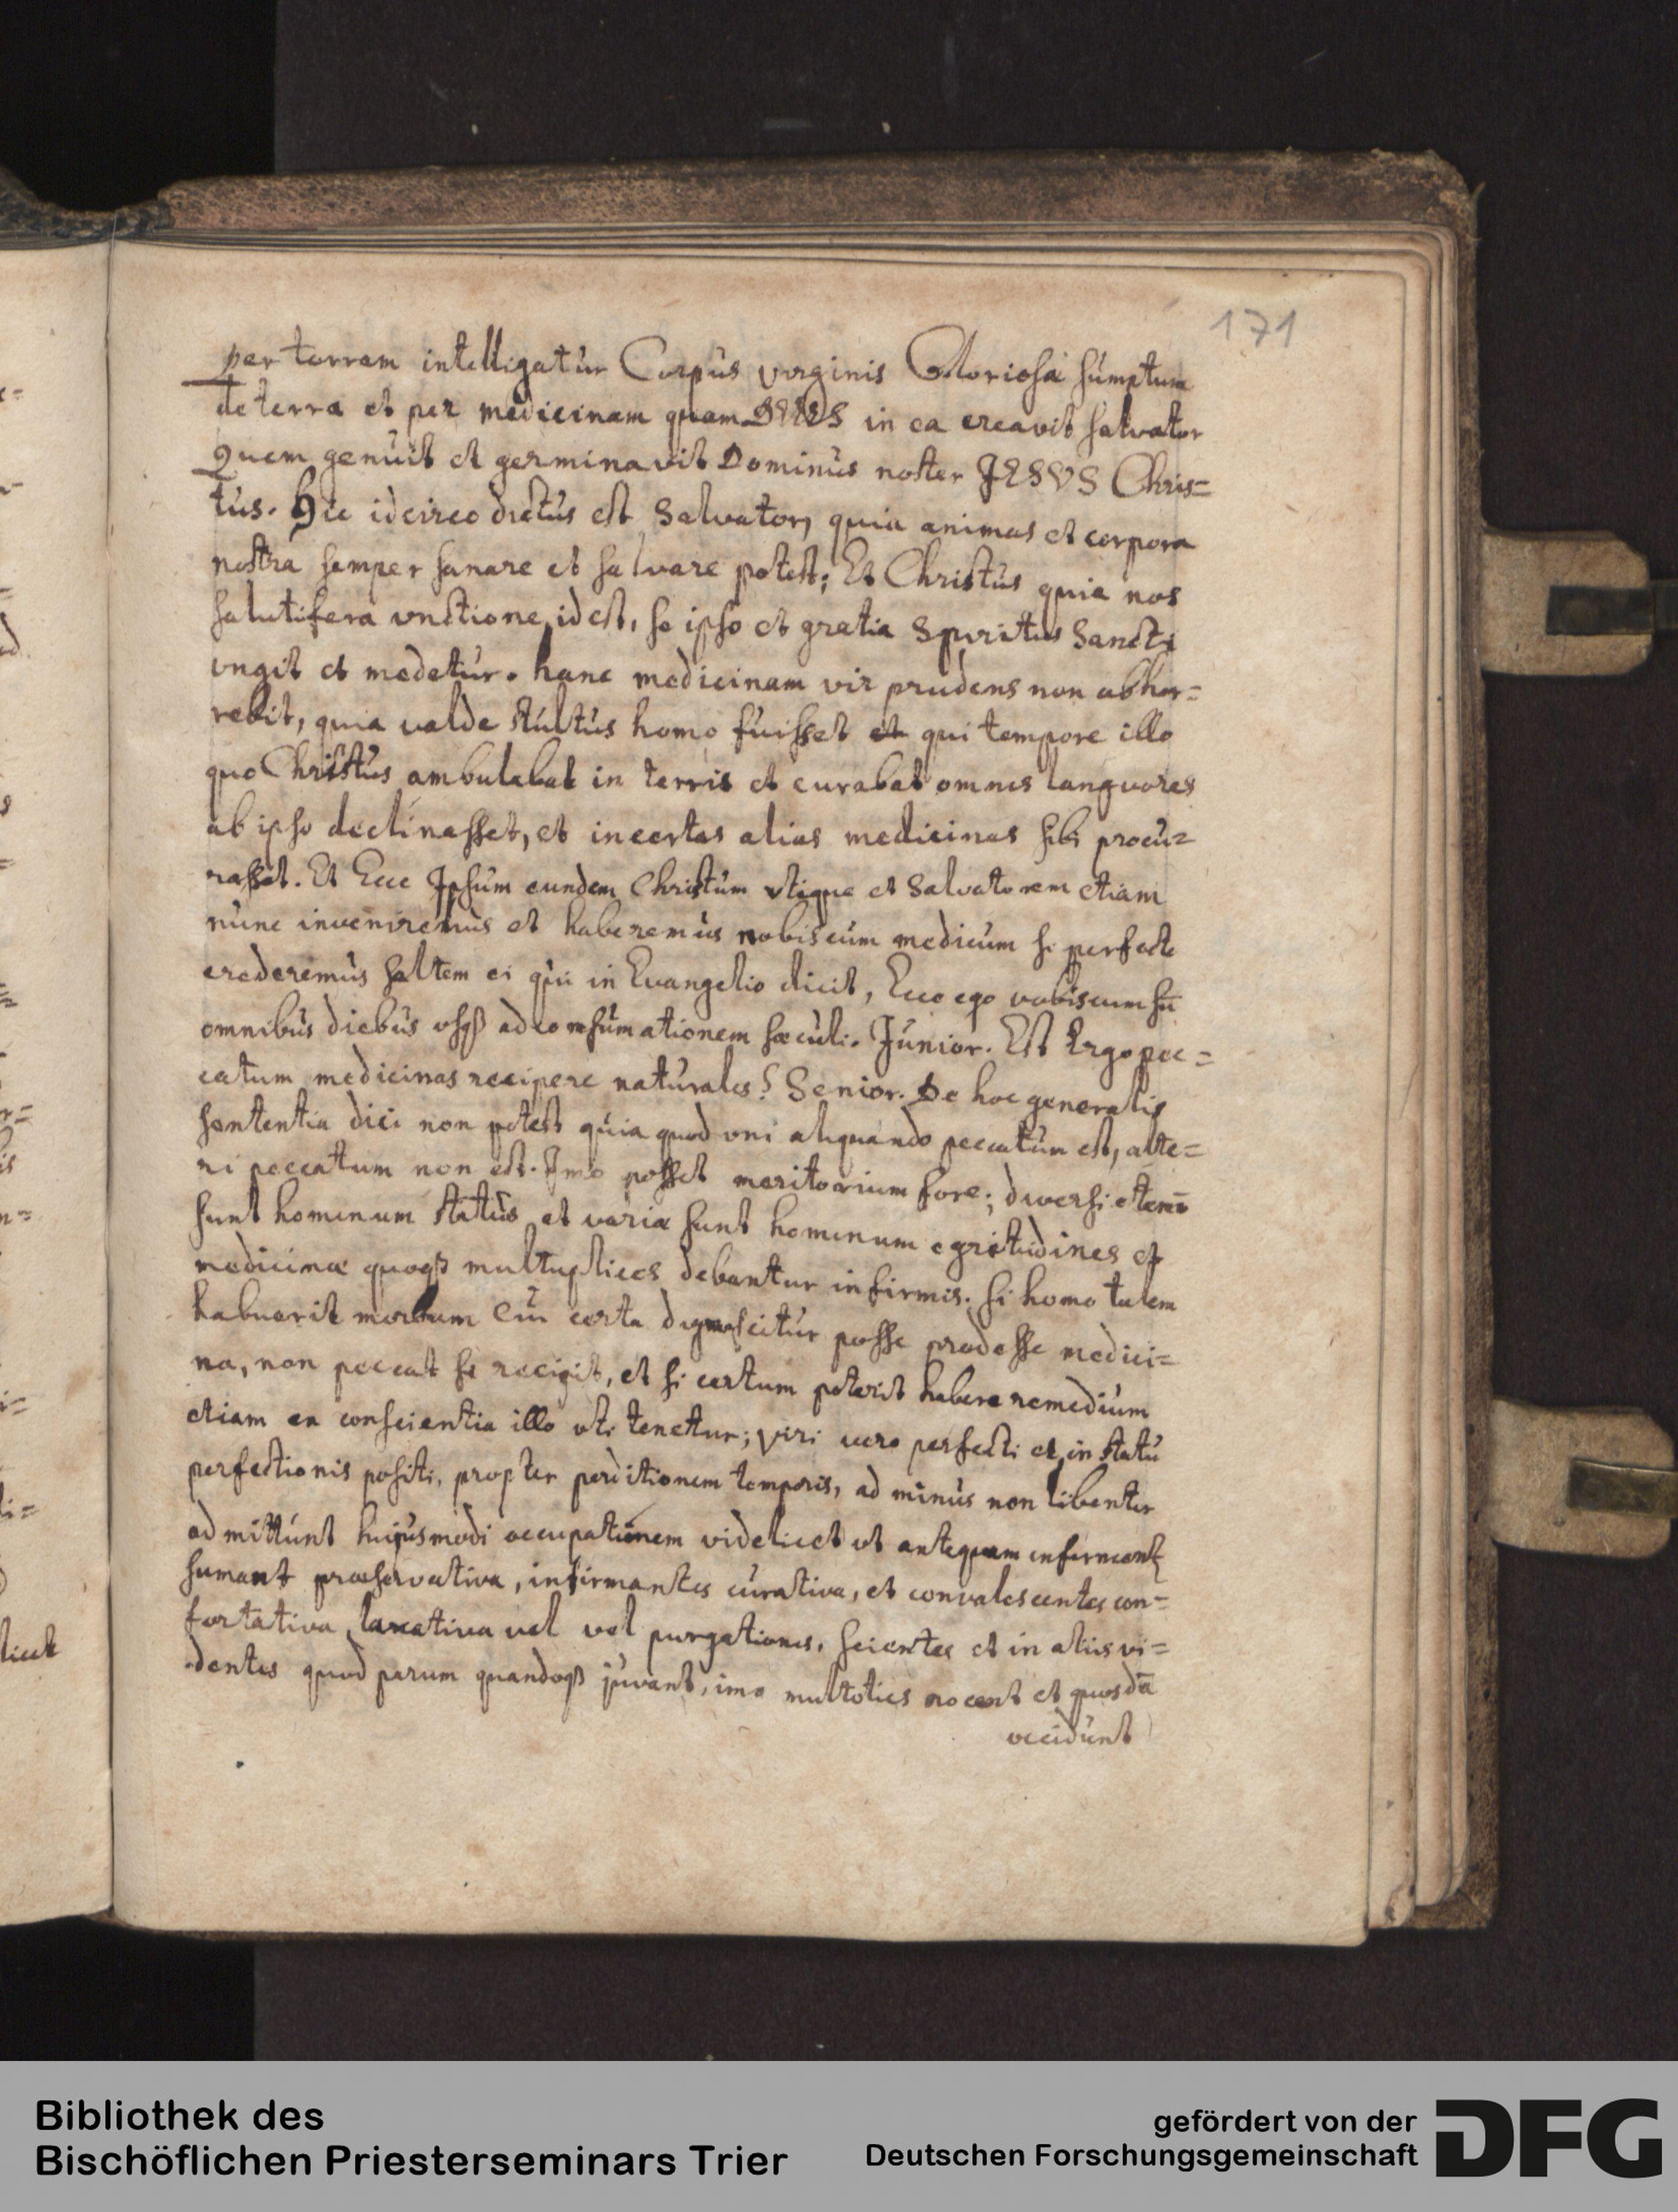 171
per terram intelligatur Corpus virginis Gloriosæ sumptum
de terra et per medicinam quam DEUS in ea creavit salvator
Quem genuit et germinavit Dominus noster JESVS Chris=
tus. Hic idcirco dictus est Salvator, quia animas et corpora
nostra semper sanare et salvare potest; Et Christus quia nos
salutifera vnctione, id est, se ipso et gratia Spiritus Sancti
vngit et medetur. hanc medicinam vir prudens non abhor=
rebit, quia valde stultus homo fuisset et qui tempore illo
quo Christus ambulabat in terris et curabat omnes languores
ab ipso declinasset, et incertas alias medicinas sibi procu=
rasset. Et Ecce Ipsum eundem Christum vtique et Salvatorem etiam
nunc inveniremus et haberemus nobiscum medicum si perfecte
crederemus saltem ei qui in Evangelio dicit, Ecce ego vobiscum sū
omnibus diebus vsqȝ ad consumationem sæculi. Junior. Est Ergo pec=
catum medicinas recipere naturales? Senior. De hoc generalis
sententia dici non potest quia quod vni aliquando peccatum est, alte=
ri peccatum non est. Imo posset meritorium fore; diversi etenī
sunt hominum status et variæ sunt hominum egritudines et
medicinæ quoqȝ multuplices debantur infirmis. si homo talem
habuerit morbum cui certa dignoscitur posse prodesse medici=
na, non peccat si recipit, et si certum poterit habere remedium
etiam ex conscientia illo vti tenetur; viri vero perfecti et in statu
perfectionis positi, propter perditionem temporis, ad minus non libenter
admittunt hujusmodi occupationem videlicet ut antequam infirmant
sumant præservativa, infirmantes curativa, et convalescentes con=
fortativa, laxativa vel vel purgationes, scientes et in aliis vi=
dentes quod parum quandoqȝ juvant, imo multoties nocent et quosdā
occidunt
licet
Bibliothek des
Bischöflichen Priesterseminars Trier
gefördert von der
Deutschen Forschungsgemeinschaft
DFG